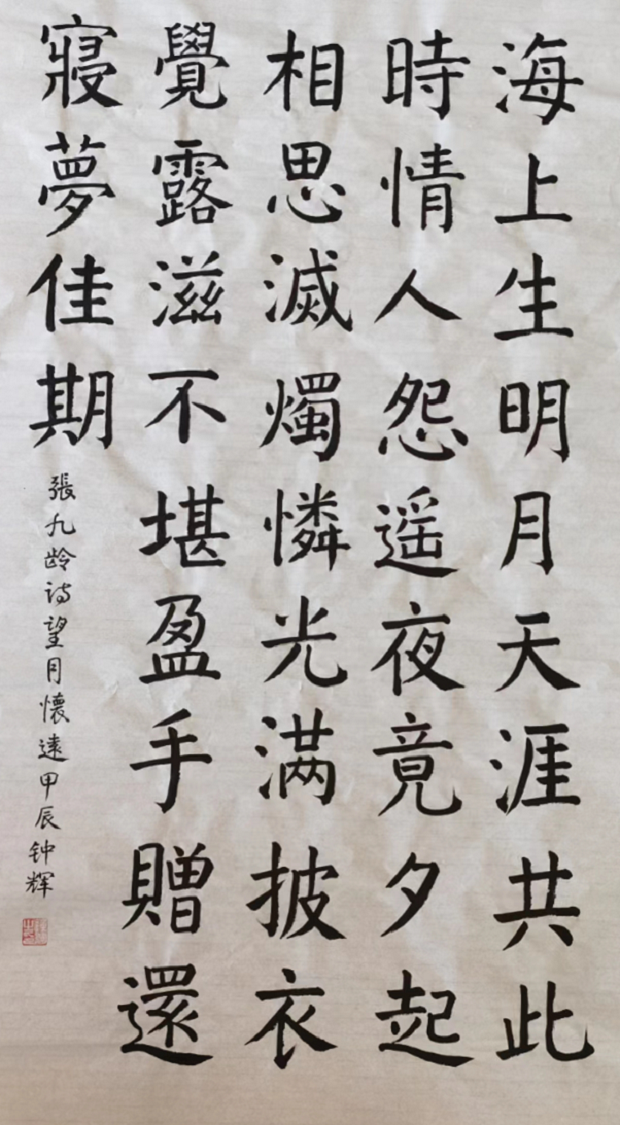 海上生明月天涯共此
時情人怨遥夜竟夕起
相思滅燭憐光滿披衣
覺露滋不堪盈手贈還
寢夢佳期
張九龄诗望月懷遠甲辰钟辉